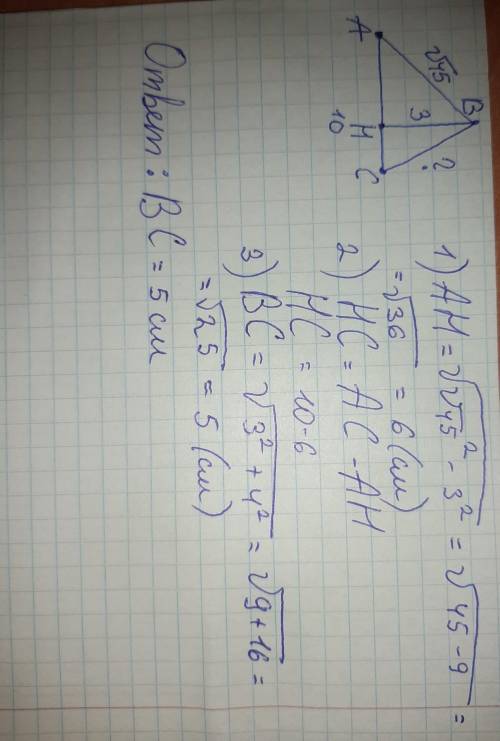 B
√45
3
?
A
H
C
10
1) AH = √(√45² - 3²) = √(45 - 9) =
= √36 = 6 (см)
2) HC = AC - AH
HC = 10 - 6
3) BC = √(3² + 4²) = √(9 + 16) =
= √25 = 5 (см)
Ответ: BC = 5 см